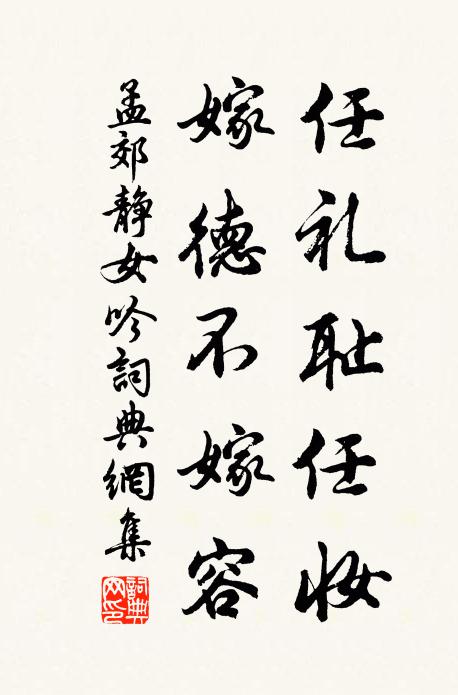 任礼耻任妆
嫁德不嫁容
孟郊静女吟詞典網集
詞典網印